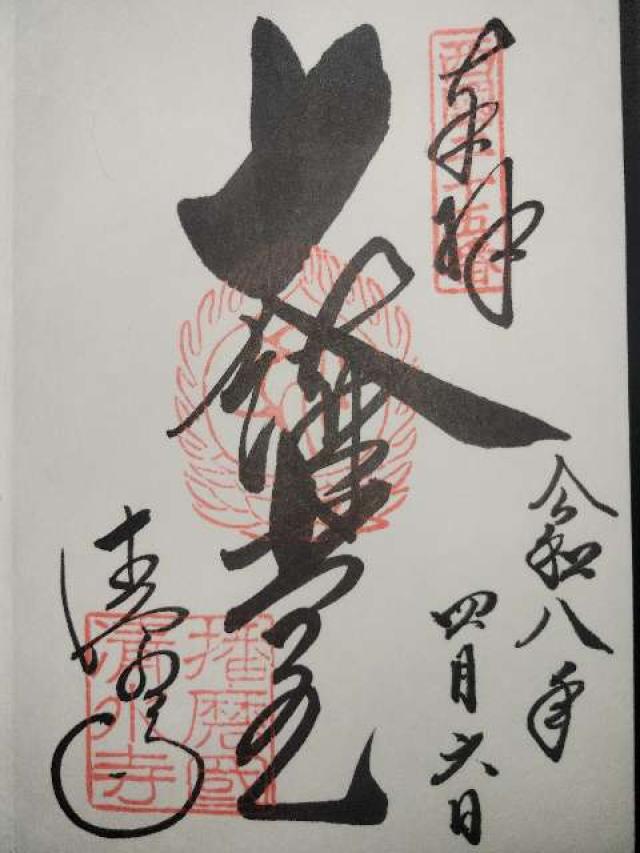 西國二十五番
奉拝
令和八年
四月六日
大
清水寺
播磨國
清水寺